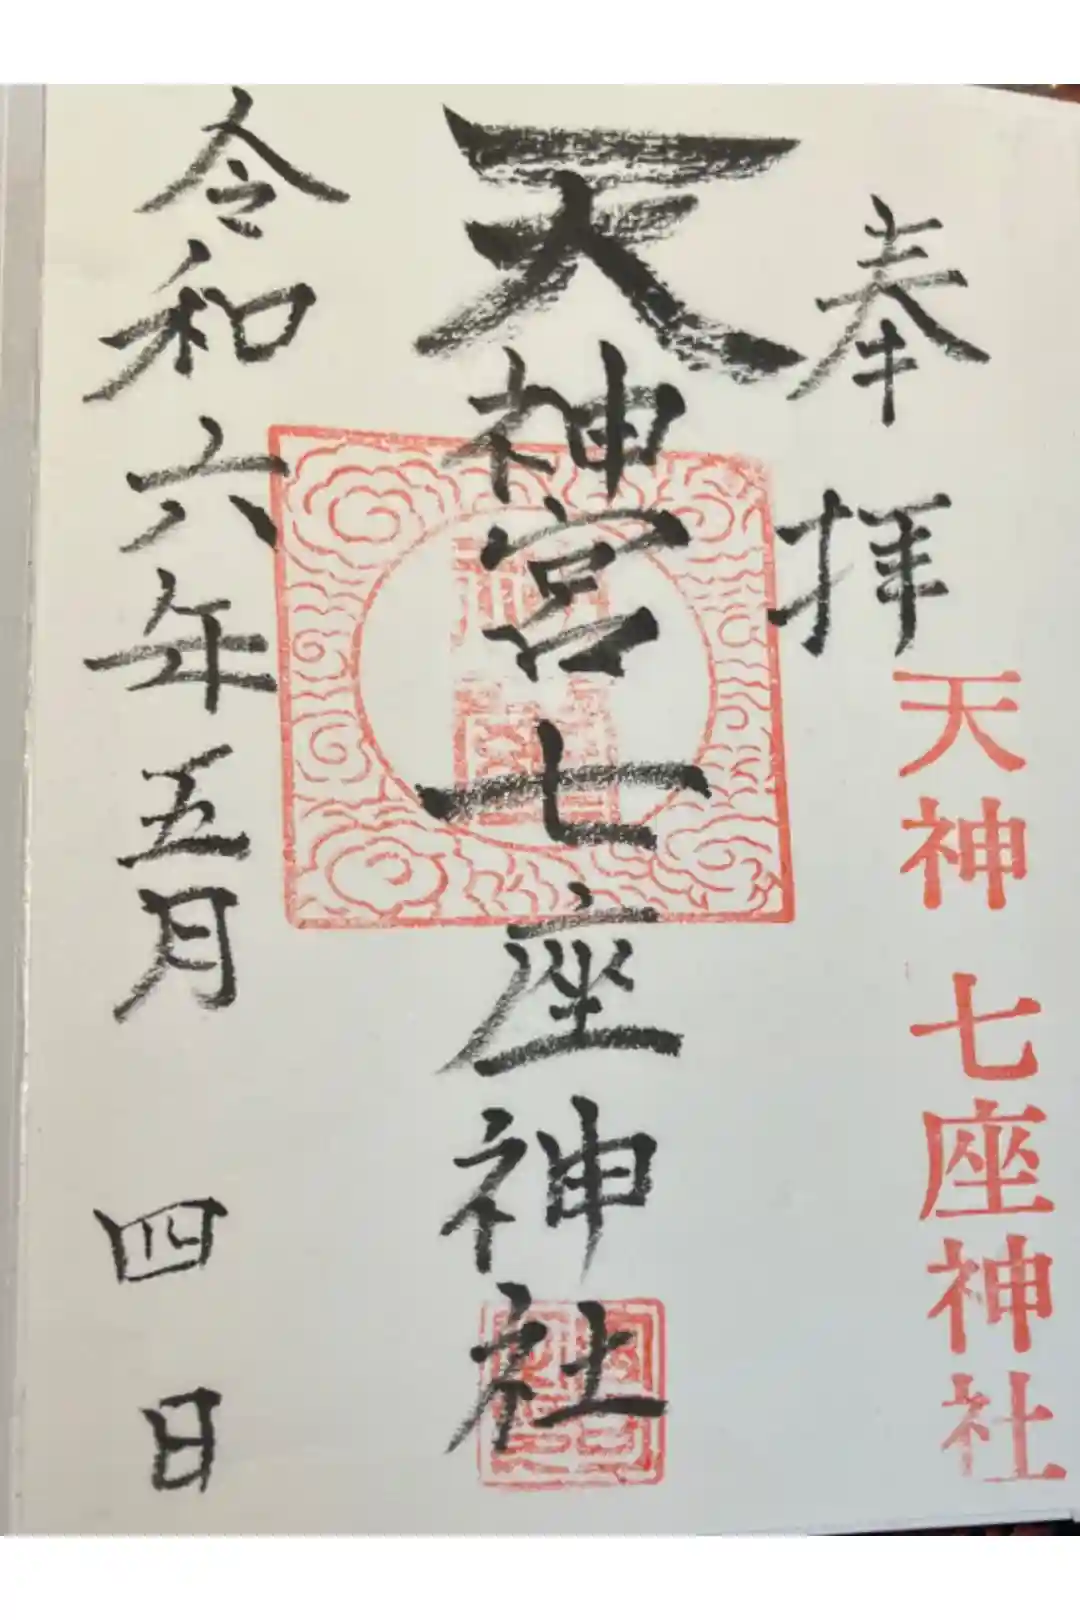 奉拝
天神七座神社
天神宮七座神社
令和六年五月四日